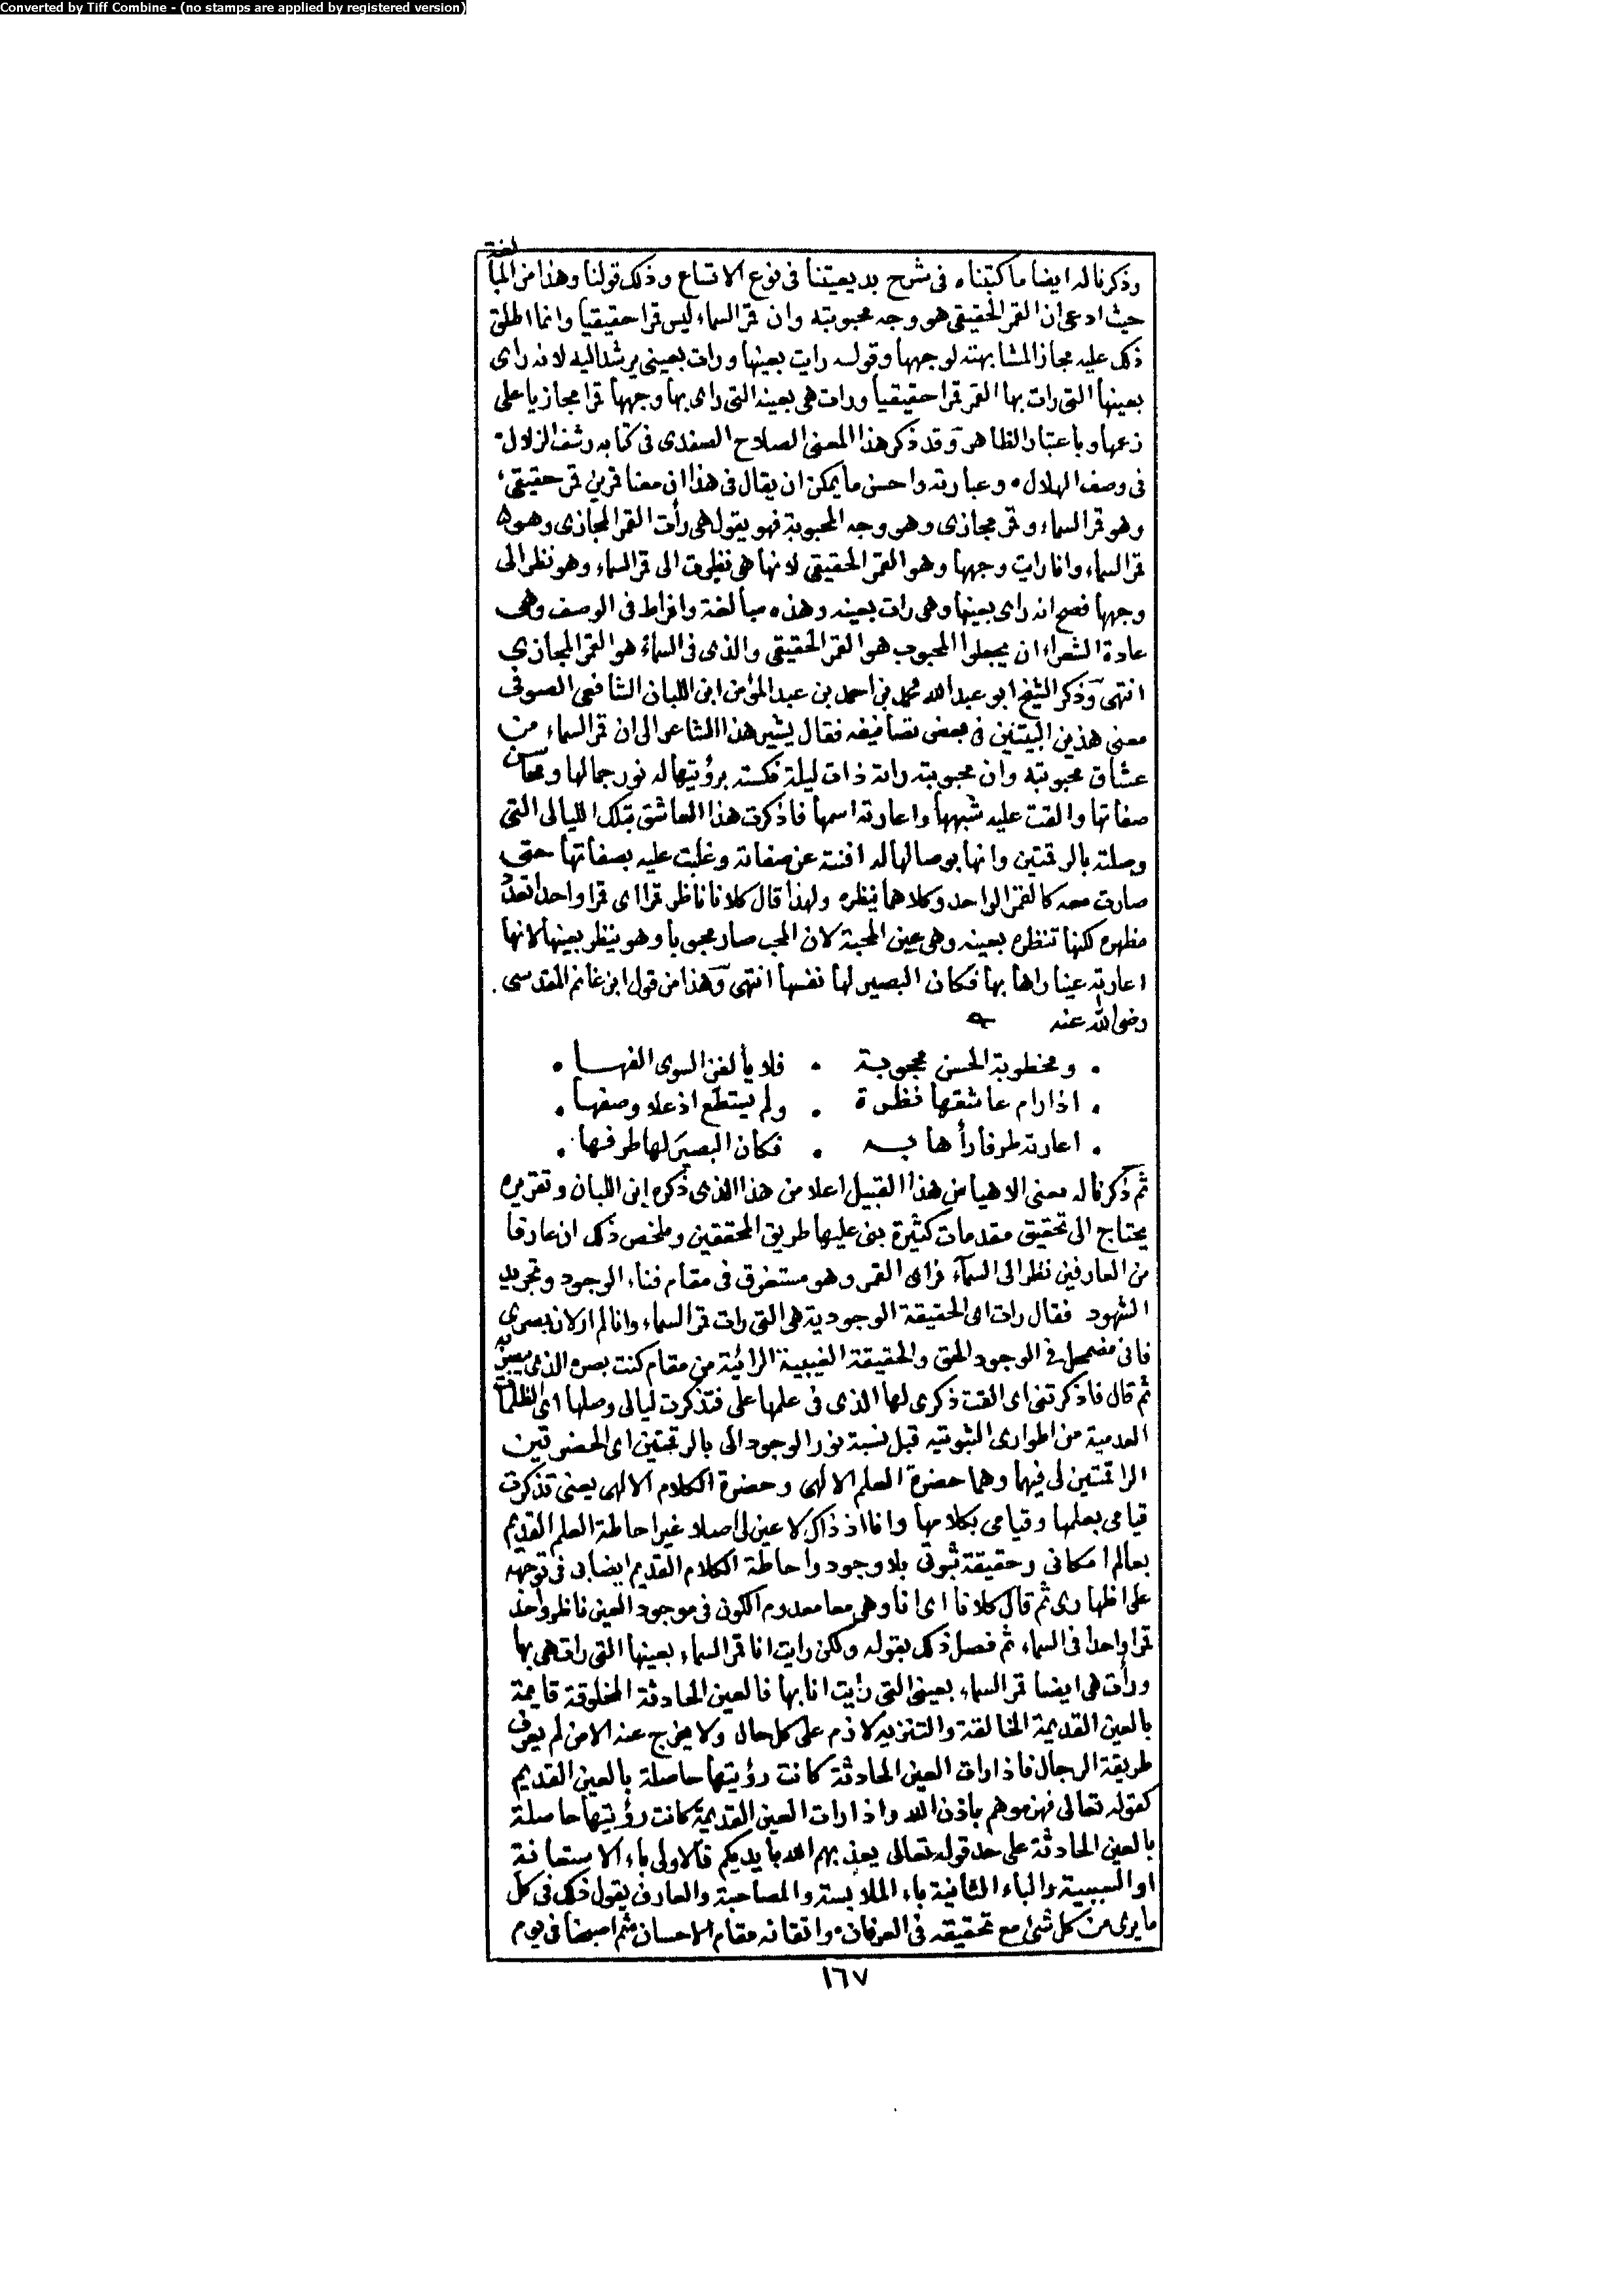 Converted by Tiff Combine - (no stamps are applied by registered version)
وذكرنا له ايضا ما كتبناه فى شرح بديعيتنا فى نوع الاتساع وذلك قولنا وهذا من المبالغة
حيث ادعى ان القمر الحقيقى هو وجه محبوبته وان قمر السماء ليس قمرا حقيقيا وانما اطلق
ذلك عليه مجازا لمشابهته لوجهها وقوله رايت بعينها ورات بعينى يرشد اليه لانه راى
بعينها التى رات بها القمر قمرا حقيقيا ورات هى بعينه التى راى بها وجهها قمرا مجازيا على
زعمها وباعتبار الظاهر وقد ذكر هذا المعنى الصلاح الصفدى فى كتابه رشف الزلال
فى وصف الهلال وعبارته واحسن ما يمكن ان يقال فى هذا ان معنا قمرين قمر حقيقى
وهو قمر السماء وقمر مجازى وهو وجه المحبوبة فهو يقول هى رأت القمر المجازى وهو
قمر السماء وانا رايت وجهها وهو القمر الحقيقى لانها هى نظرت الى قمر السماء وهو نظر الى
وجهها فصح انه راى بعينها وهى رات بعينه وهذه مبالغة وافراط فى الوصف وهى
عادة الشعراء ان يجعلوا المحبوب هو القمر الحقيقى والذى فى السماء هو القمر المجازي
انتهى وذكر الشيخ ابو عبد الله محمد بن احمد بن عبد المؤمن ابن اللبان الشافعى الصوفى
معنى هذين البيتين فى بعض تصانيفه فقال يشير هذا الشاعر الى ان قمر السماء من
عشاق محبوبته وان محبوبته راته ذات ليلة فكسته برؤيتها له نور جمالها ومحاسن
صفاتها والقت عليه شبهها واعارته اسمها فاذكرت هذا العاشق بتلك الليالى التى
وصلته بالرقمتين وانها بوصالها له افنته عن صفاته وغلبت عليه بصفاتها حتى
صارت معه كالقمر الواحد وكلاهما ينظره ولهذا قال كلانا ناظر قمرا اى قمرا واحدا تعدد
مظهره لكنها تنظره بعينه وهى عين المحبة لان المحب صار محبوبا وهو ينظر بعينها لانها
اعارته عينا راها بها فكان البصير لها نفسها انتهى وهذا من قول ابن غانم المقدسى
رضى الله عنه
ومخطوبة الحسن محجوبة • فلا يألفن السوى الفها
اذا رام عاشقها نظرة • ولم يستطع اذ علا وصفها
اعارته طرفا رأها به • فكان البصير لها طرفها
ثم ذكرنا له معنى الاهيا من هذا القبيل اعلا من هذا الذى ذكره ابن اللبان وتقريره
يحتاج الى تحقيق مقدمات كثيرة بنى عليها طريق المحققين وملخص ذلك ان عارفا
من العارفين نظر الى السماء فراى القمر وهو مستغرق فى مقام فناء الوجود وتجريد
الشهود فقال رات اى الحقيقة الوجودية هى التى رات قمر السماء وانا لم ار لان بصرى
فانى مضمحل فى الوجود الحق والحقيقة الغيبية الرائية من مقام كنت بصره الذى يبصر به
ثم قال فاذكرتنى اى القت ذكرى لها الذى فى علمها على فتذكرت ليالى وصلها اى الظلمات
العدمية من اطوارى الثبوتيه قبل نسبة نور الوجود الى بالرقمتين اى الحضرتين
الراقمتين لى فيهما وهما حضرة العلم الالهى وحضرة الكلام الالهى يعنى تذكرت
قيامى بعلمها وقيامى بكلامها وانا اذ ذاك لا عين لى اصلا غير احاطة العلم القديم
بعالم امكانى وحقيقة ثبوتى بلا وجود واحاطة الكلام القديم ايضا بى فى توجهه
على اظهارى ثم قال كلانا اى انا وهى معا معدوم الكون فى موجود العين ناظر واحد
قمرا واحدا فى السماء ثم فصل ذلك بقوله ولكن رايت انا قمر السماء بعينها التى رات هى بها
ورأت هى ايضا قمر السماء بعينى التى رأيت انا بها فالعين الحادثة المخلوقة قايمة
بالعين القديمة الخالقة والتنزيه لازم على كل حال ولا يخرج عنه الا من لم يعرف
طريقة الرجال فاذا رات العين الحادثة كانت رؤيتها حاصلة بالعين القديم
كقوله تعالى فهزموهم باذن الله واذا رات العين القديمة كانت رؤيتها حاصلة
بالعين الحادثة على حد قوله تعالى يعذبهم الله بايديكم فالاولى باء الاستعانة
او السببية والباء الثانية باء الملابسة والمصاحبة والعارف يقول ذلك فى كل
ما يرى من كل شئ مع تحقيقه فى العرفان واتقانه مقام الاحسان ثم اصبحنا فى يوم
١٦٧